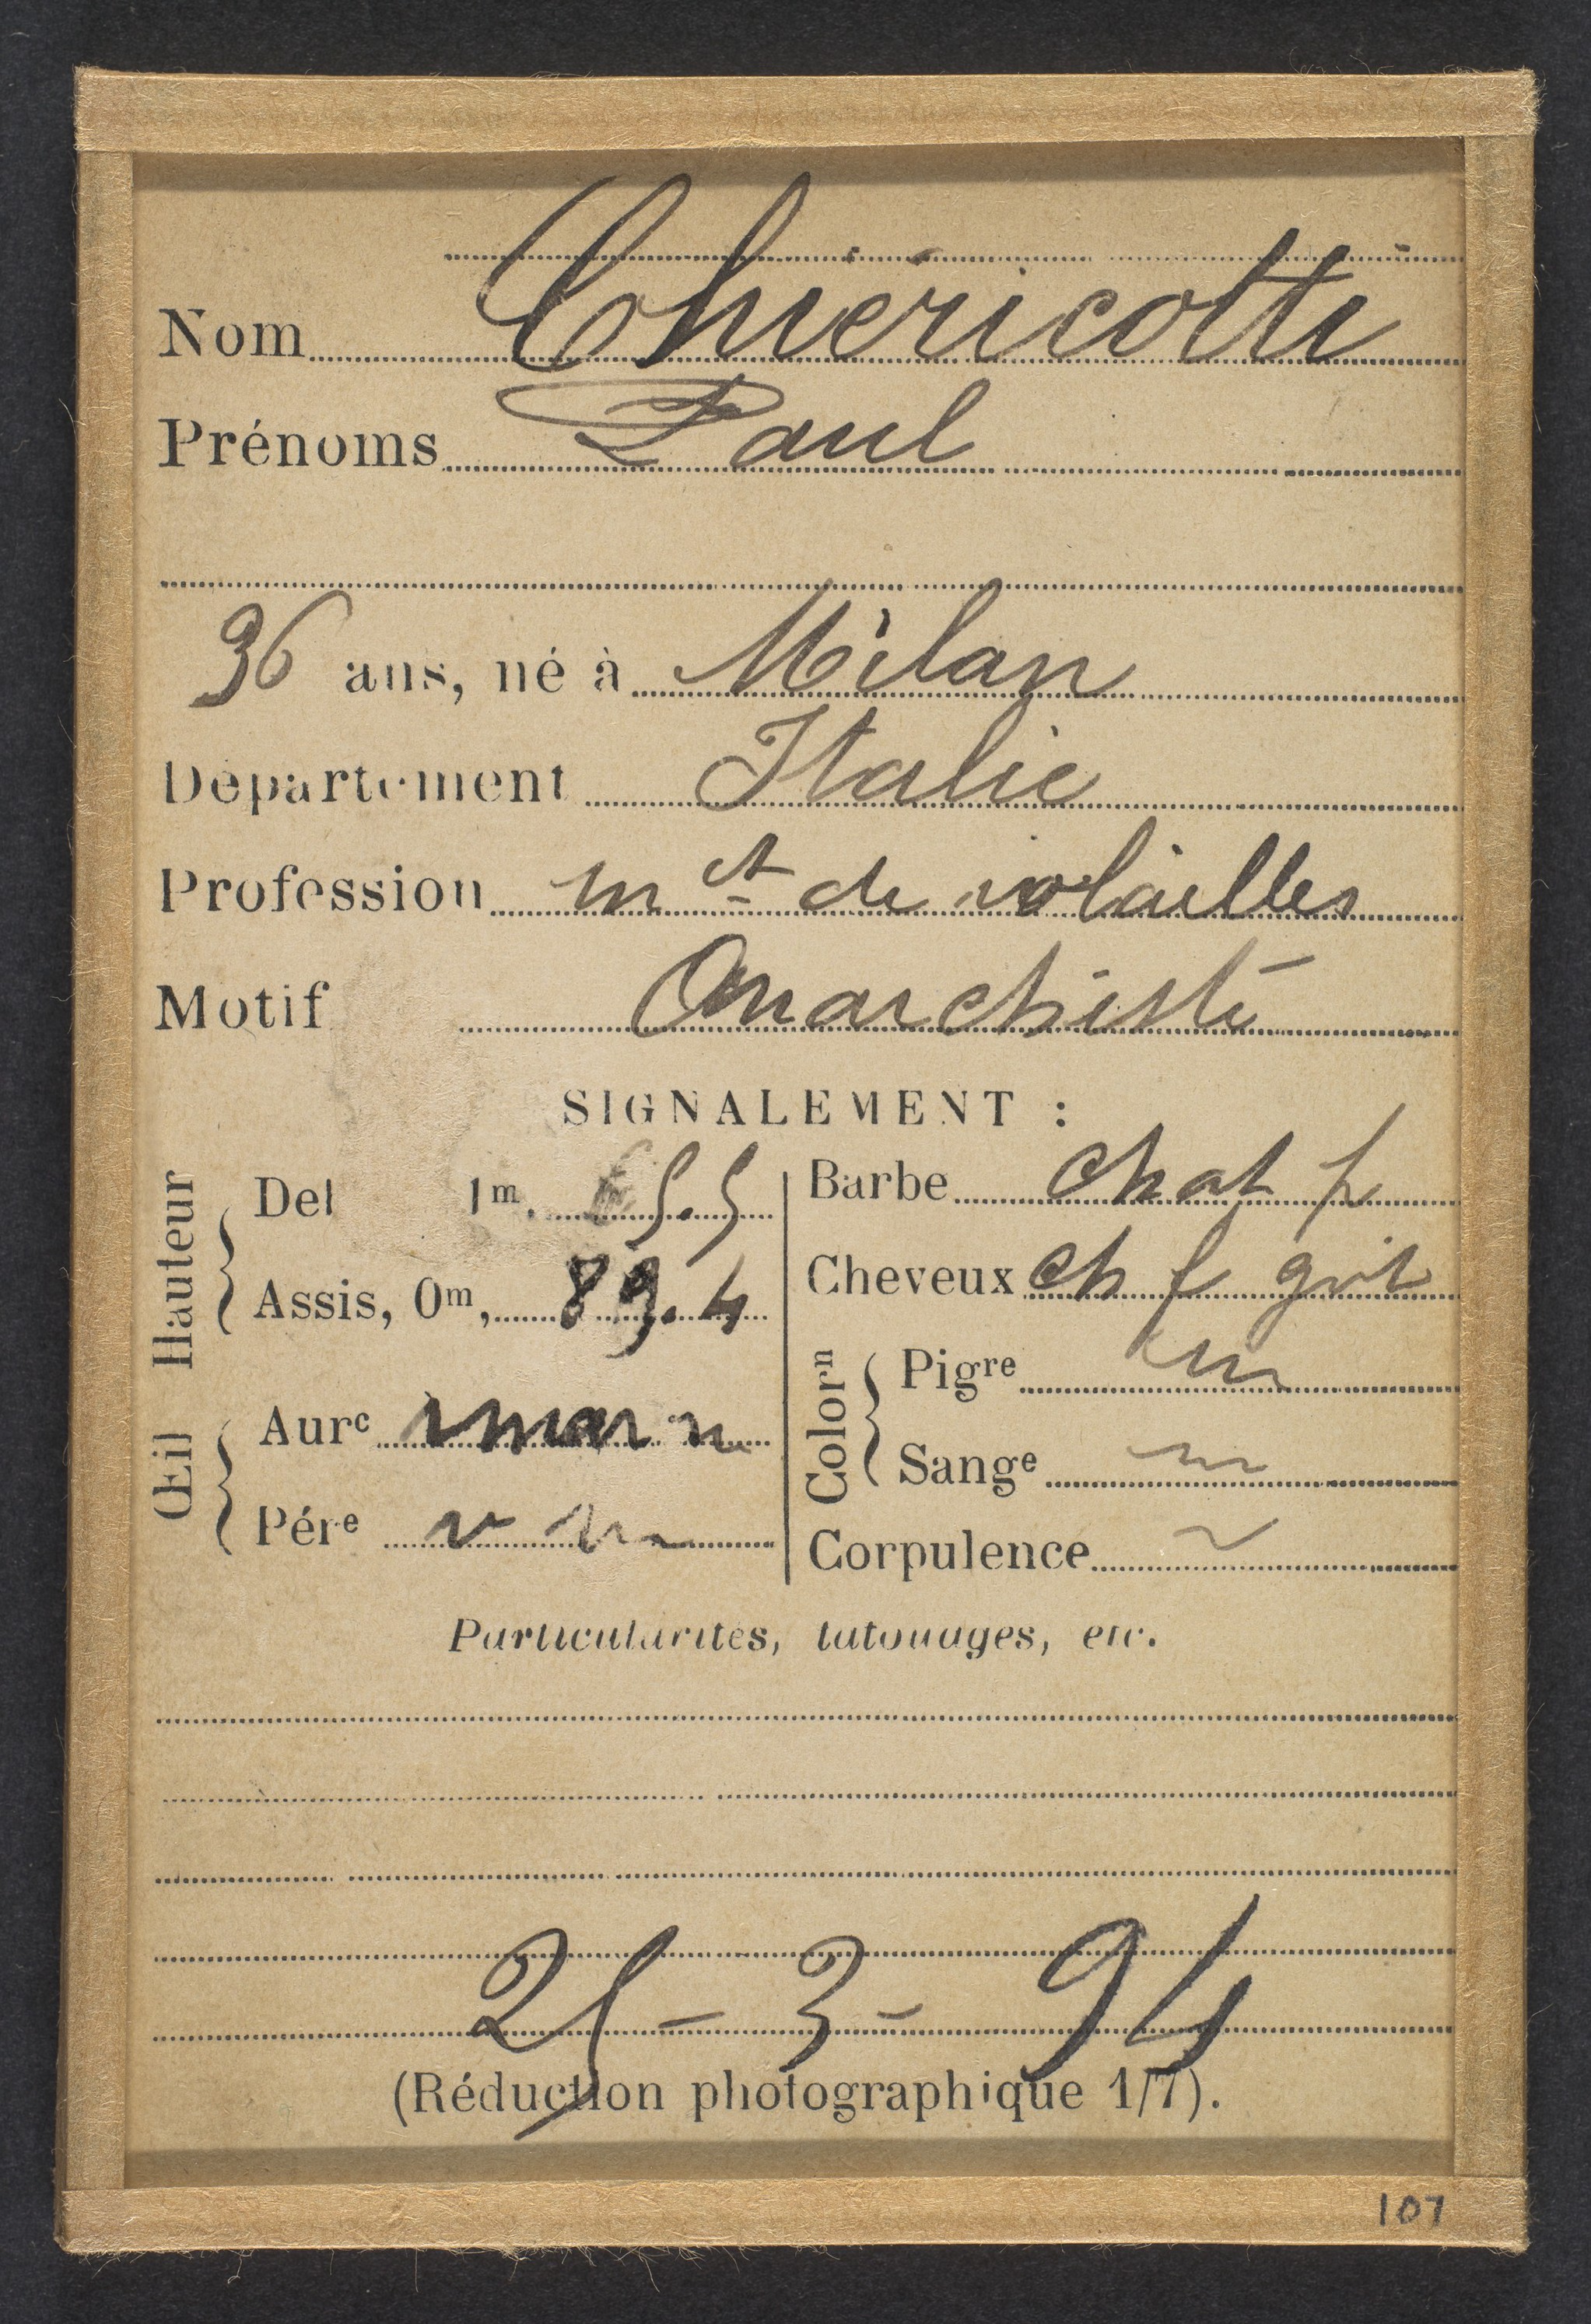 Nom Chiericotti
Prénoms Paul
36 ans, né à Milan
Département Italie
Profession mct de volailles
Motif Anarchiste
SIGNALEMENT :
Hauteur
Del 1m, 65.5
Assis, 0m, 89.4
Œil
Aure
Pére v m
Barbe chat f
Cheveux ch f gris
Colorn
Pigre m
Sange m
Corpulence
Particularités, tatouages, etc.
25-3-94
(Réduction photographique 1/7).
107